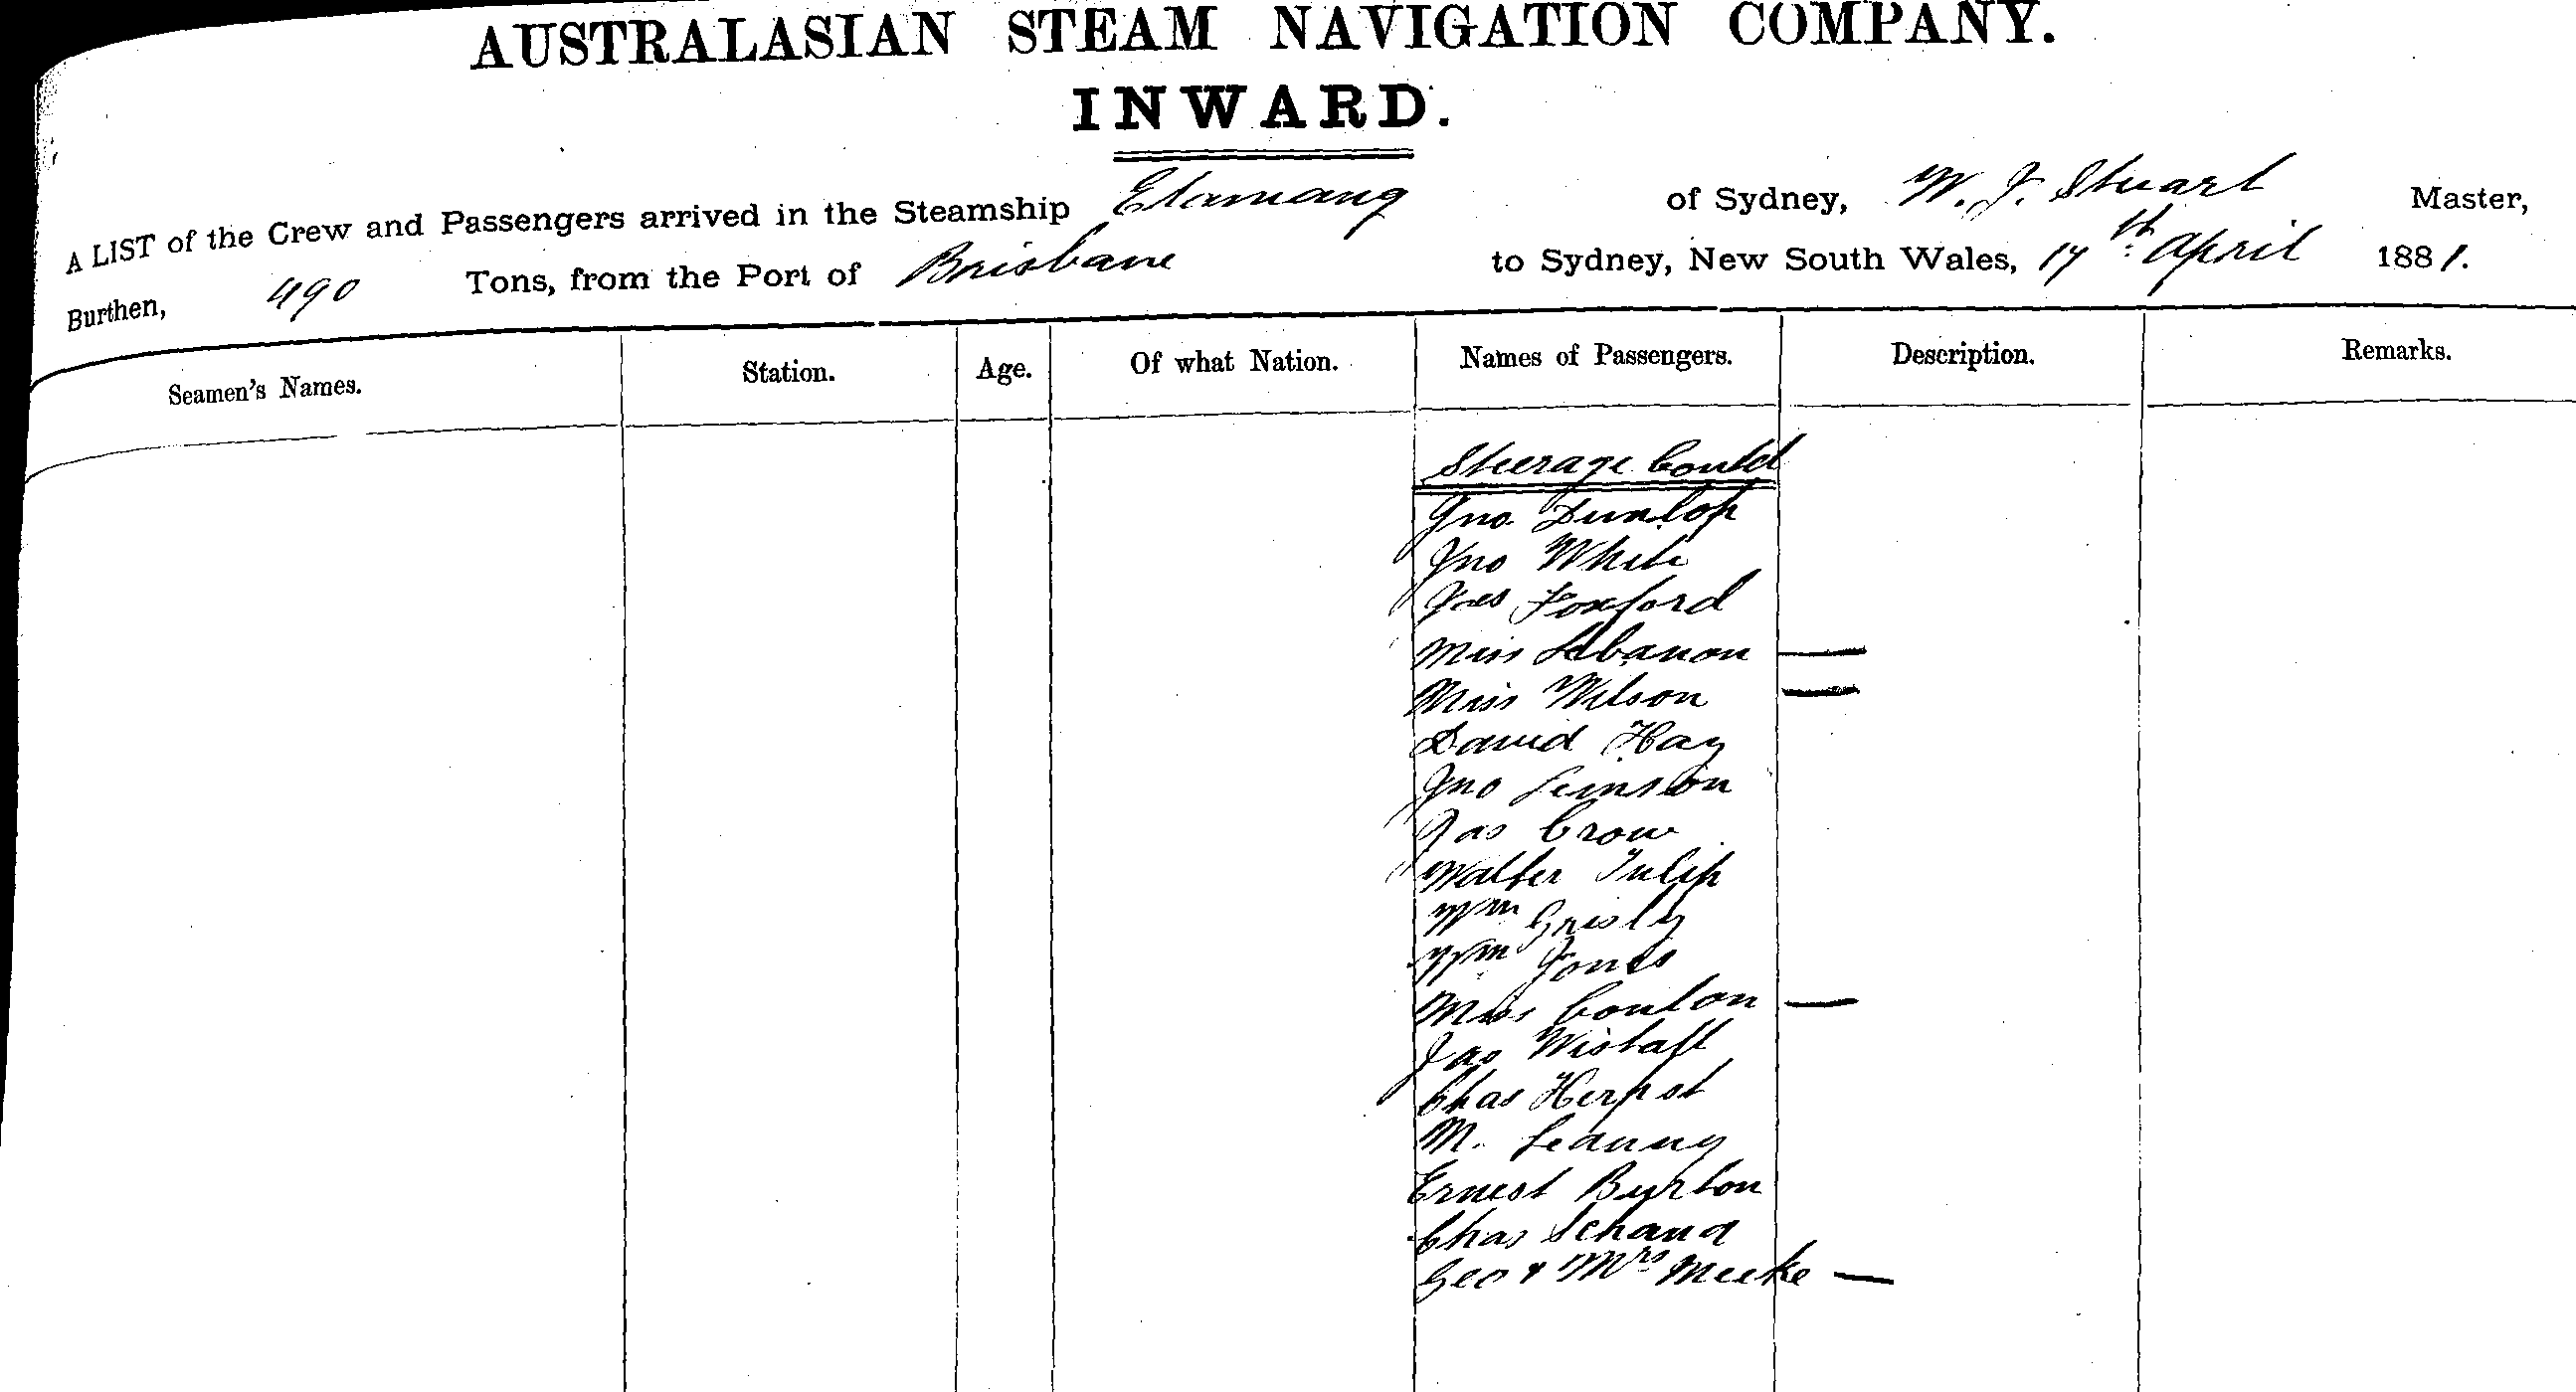 AUSTRALASIAN STEAM NAVIGATION COMPANY.
INWARD.
A LIST of the Crew and Passengers arrived in the Steamship Elamang of Sydney, W. J. Stuart Master,
Burthen, 490 Tons, from the Port of Brisbane to Sydney, New South Wales, 17th April 1881.
Seamen's Names. Station. Age. Of what Nation. Names of Passengers. Description. Remarks.
Steerage Contd
Jno Dunlop
Jno White
Foxford
Miss Lebanon —
Miss Wilson —
David Hay
Jno
Jas Crow
Walter Tulip
Wm Grisly
Wm Jones
Miss Coulon —
Jas Wistaft
Chas Herpst
M.
Ernest Burton
Chas Schand
Geo & Mrs Meeke —